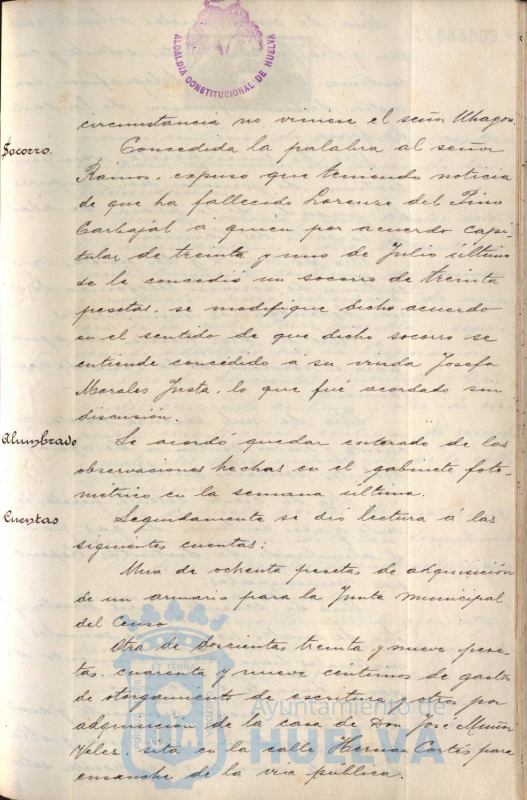 ALCALDIA CONSTITUCIONAL DE HUELVA
circunstancia no viniese el señor Uhagon.
Socorro.
Concedida la palabra al señor
Ramos, expuso que teniendo noticia
de que ha fallecido Lorenzo del Pino
Carbajal á quien por acuerdo capi-
tular de treinta y uno de Julio último
se le concedió un socorro de treinta
pesetas, se modifique dicho acuerdo
en el sentido de que dicho socorro se
entiende concedido á su viuda Josefa
Morales Justa, lo que fué acordado sin
discusión.
Alumbrado
Se acordó quedar enterado de las
observaciones hechas en el gabinete foto-
métrico en la semana última.
Cuentas
Seguidamente se dió lectura á las
siguientes cuentas:
Una de ochenta pesetas de adquisición
de un armario para la Junta municipal
del Censo
Otra de doscientas treinta y nueve pese-
tas, cuarenta y nueve céntimos de gastos
de otorgamiento de escritura y otros por
adquisición de la casa de Don José Muñoz
Velez, sita en la calle Hernan Cortés para
ensanche de la via pública.
Ayuntamiento de
HUELVA